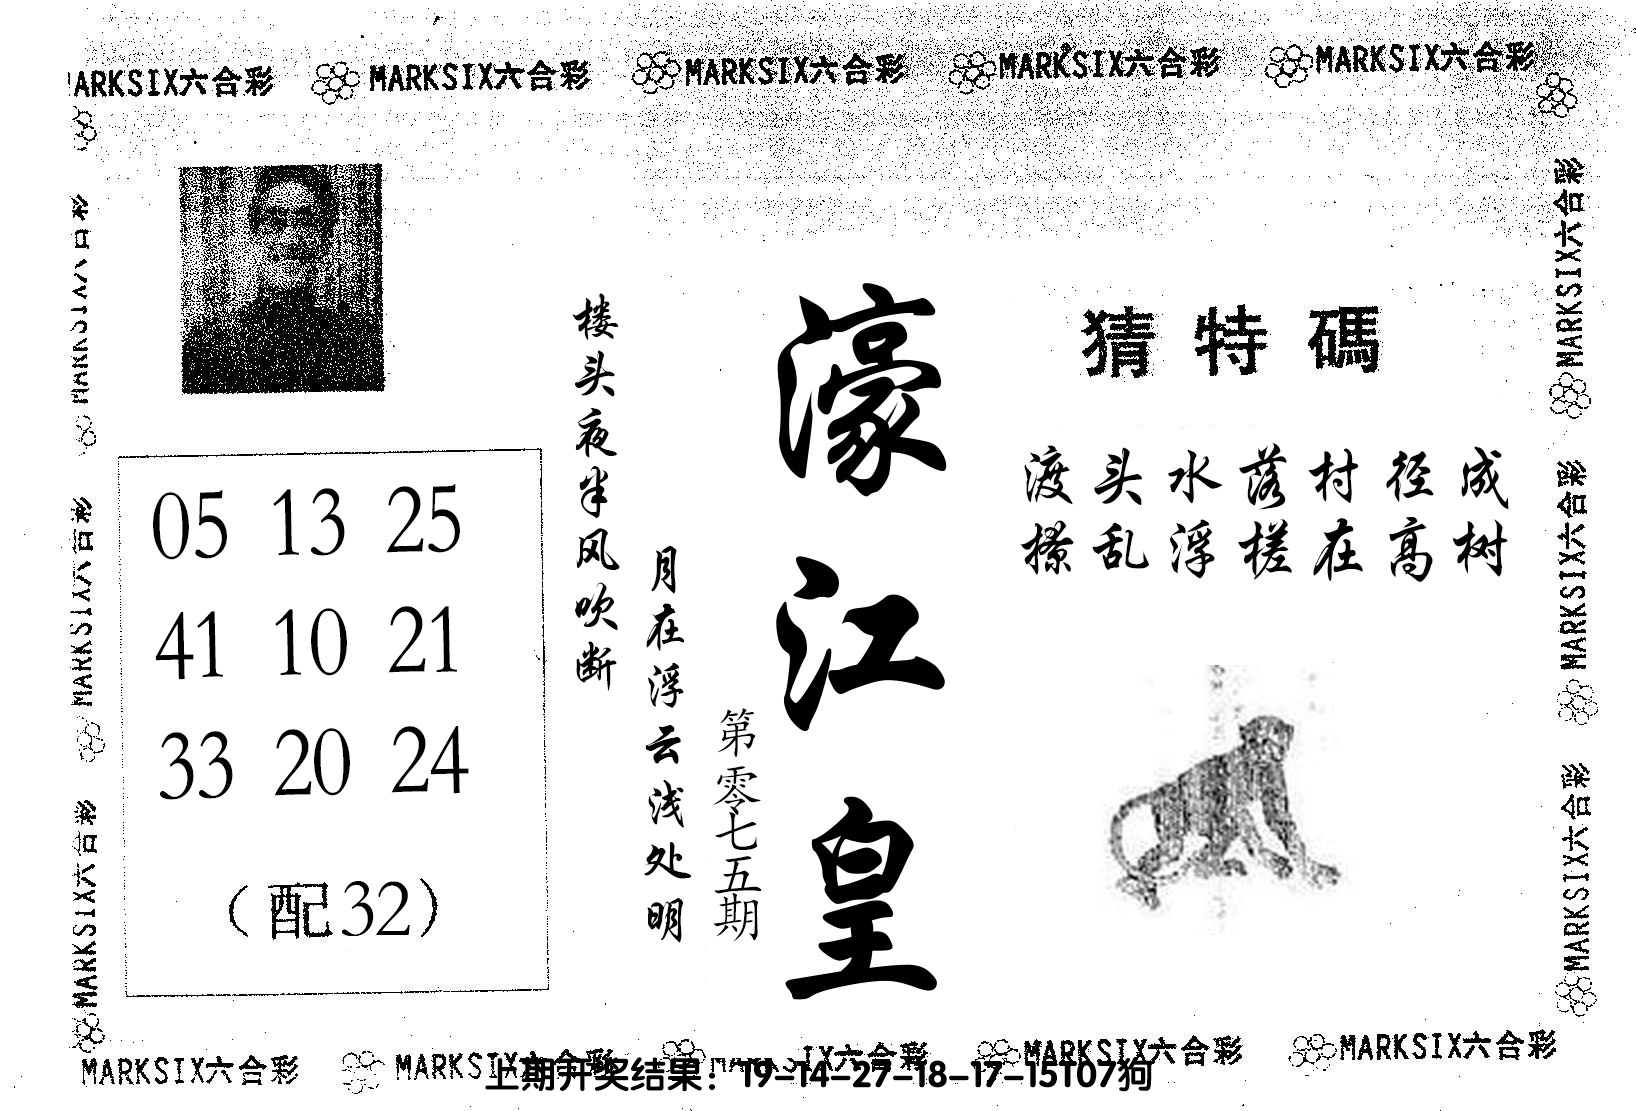 MARKSIX六合彩 MARKSIX六合彩 MARKSIX六合彩 MARKSIX六合彩
ARKSIX六合彩
濠江皇
第零七五期
楼头夜半风吹断
月在浮云浅处明
猜特碼
渡头水落村径成
撩乱浮槎在高树
05 13 25
41 10 21
33 20 24
（配32）
MARKSIX六合彩
MARKSIX六合彩
MARKSIX六合彩
MARKSIX六合彩
MARKSIX六合彩
MARKSIX六合彩 MARKSIX六合彩 MARKSIX六合彩 MARKSIX六合彩
上期开奖结果：19-14-27-18-17-15T07狗